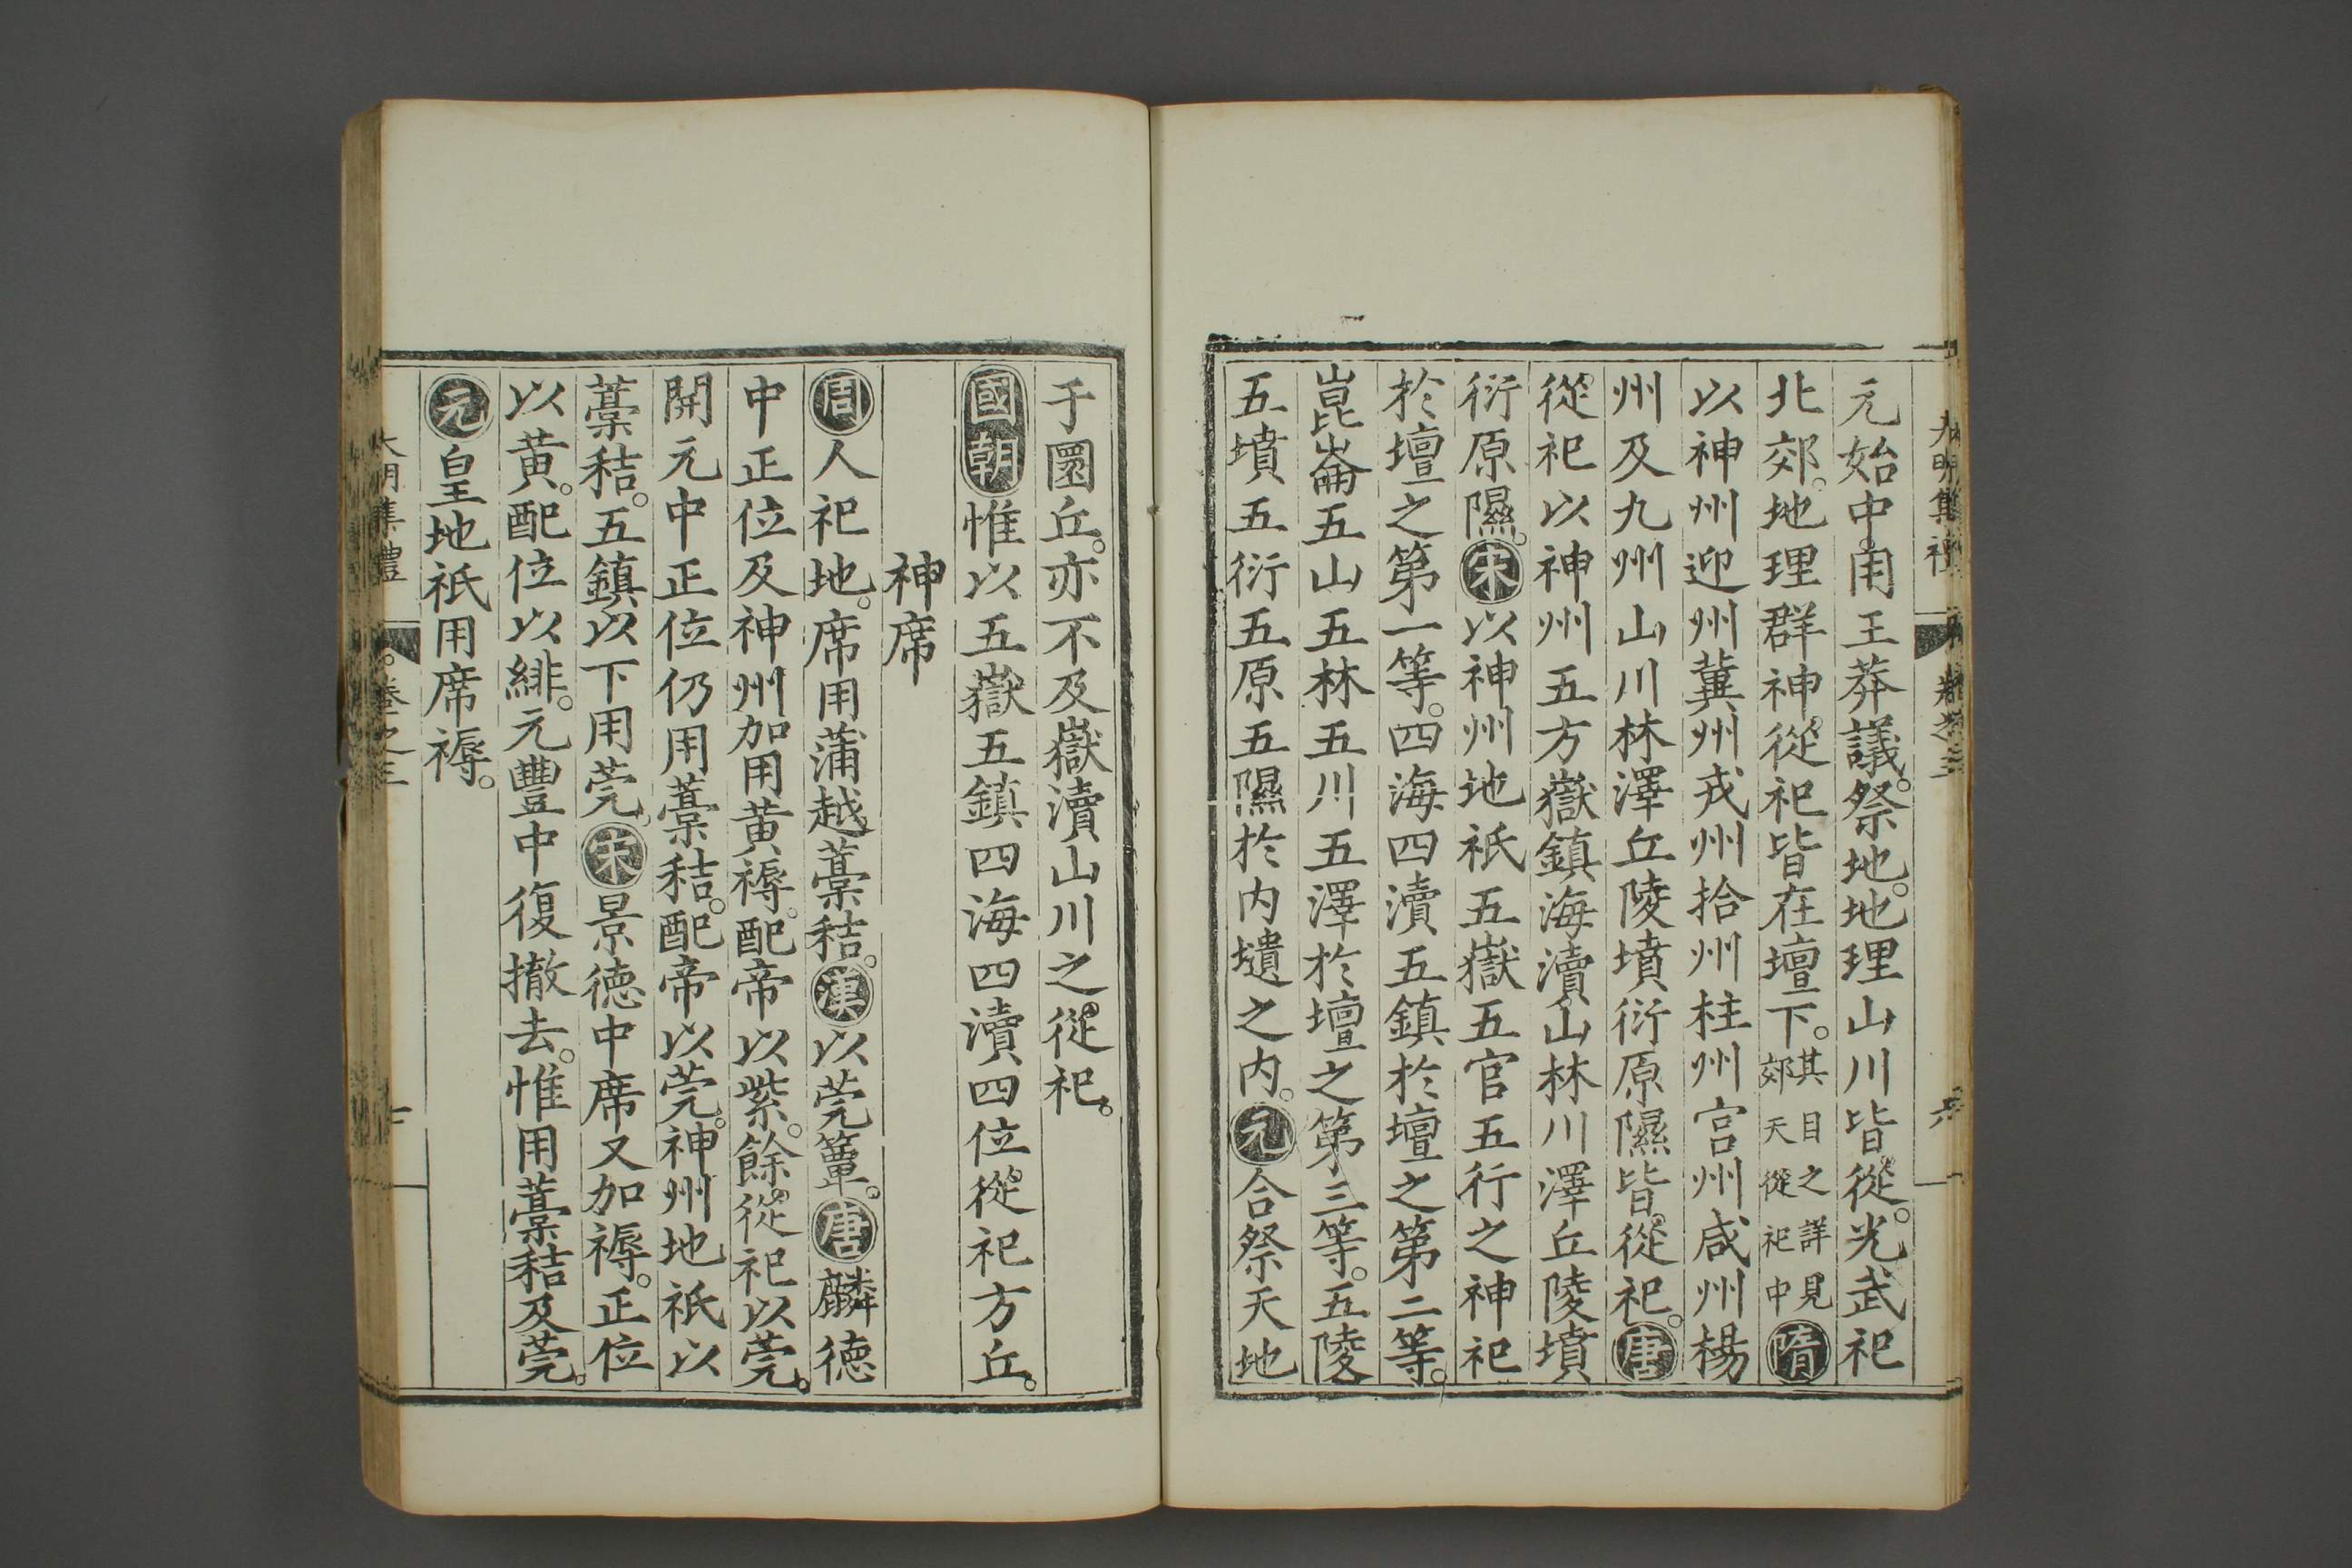 大明集禮 卷之三 六
元始中用王莽議。祭地。地理山川皆從。光武祀
北郊。地理群神從祀皆在壇下。其目之詳見郊天從祀中隋
以神州迎州冀州戎州拾州柱州宫州咸州楊
州及九州山川林澤丘陵墳衍原隰皆從祀。唐
從祀以神州五方嶽鎮海瀆山林川澤丘陵墳
衍原隰。宋以神州地祇五嶽五官五行之神祀
於壇之第一等。四海四瀆五鎮於壇之第二等。
崑崙五山五林五川五澤於壇之第三等。五陵
五墳五衍五原五隰於内壝之内。元合祭天地
于圜丘。亦不及嶽瀆山川之從祀。
國朝惟以五嶽五鎮四海四瀆四位從祀方丘。
神席
周人祀地。席用蒲越藁秸。漢以莞簟。唐麟德
中正位及神州加用黄褥。配帝以紫。餘從祀以莞。
開元中正位仍用藁秸。配帝以莞。神州地祇以
藁秸。五鎮以下用莞。宋景德中席又加褥。正位
以黄。配位以緋。元豐中復撤去。惟用藁秸及莞。
元皇地祇用席褥。
大明集禮 卷之三